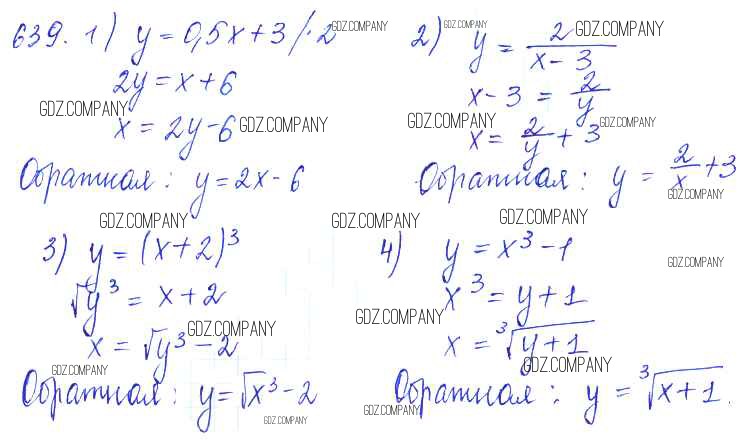 639. 1) y = 0,5x + 3 /·2 GDZ.COMPANY
2y = x + 6
GDZ.COMPANY
x = 2y - 6 GDZ.COMPANY
Обратная: y = 2x - 6
2) GDZ.COMPANY y = 2/(x - 3) GDZ.COMPANY
x - 3 = 2/y
GDZ.COMPANY x = 2/y + 3 GDZ.COMPANY
Обратная: y = 2/x + 3
GDZ.COMPANY
GDZ.COMPANY
3) y = (x + 2)³
√y³ = x + 2
GDZ.COMPANY
x = √y³ - 2
GDZ.COMPANY
Обратная: y = √x³ - 2
GDZ.COMPANY
GDZ.COMPANY GDZ.COMPANY
4) y = x³ - 1
GDZ.COMPANY
x³ = y + 1
GDZ.COMPANY
x = ³√(y + 1)
GDZ.COMPANY
Обратная: y = ³√(x + 1).
GDZ.COMPANY